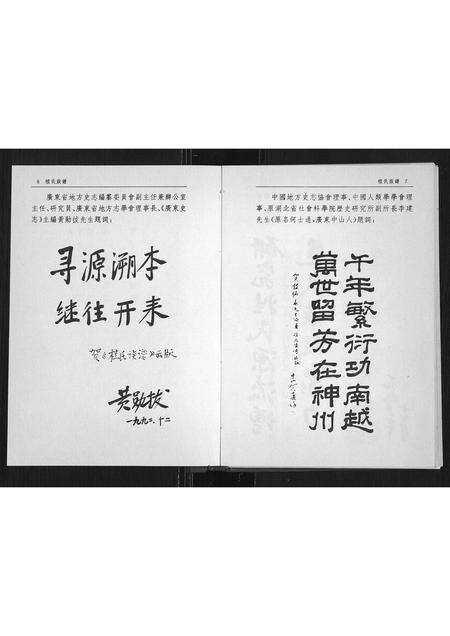 6 植氏族譜
廣東省地方史志編纂委員會副主任兼辦公室
主任、研究員、廣東省地方志學會理事長、《廣東史
志》主編黃勛拔先生題詞:
寻源溯本
继往开来
贺《植氏族谱》出版
黄勋拔
一九九二.十二
植氏族譜 7
中國地方史志協會理事、中國人類學學會理
事、原湖北省社會科學院歷史研究所副所長李建
先生(原名何士通,廣東中山人)題詞:
千年繁衍功南越
萬世留芳在神州